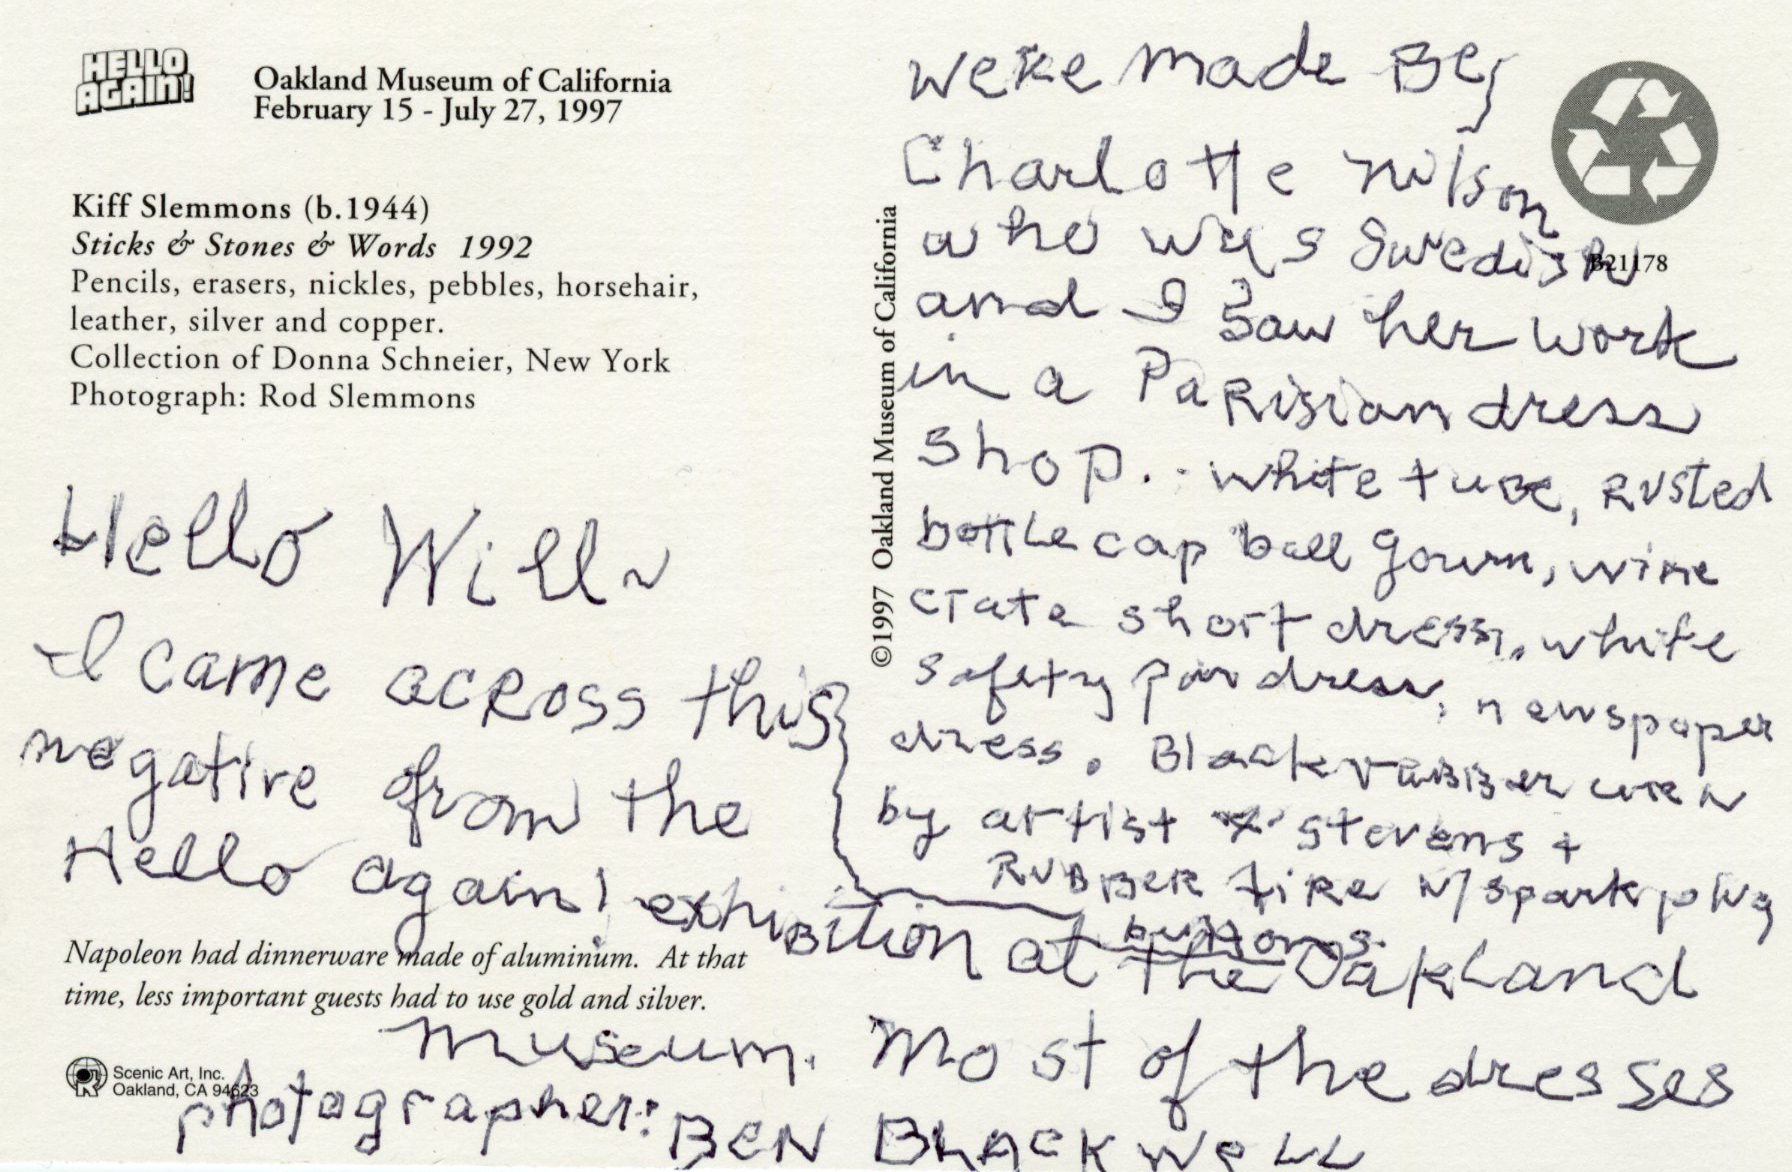 HELLO
AGAIN!
Oakland Museum of California
February 15 - July 27, 1997
Kiff Slemmons (b.1944)
Sticks & Stones & Words 1992
Pencils, erasers, nickles, pebbles, horsehair,
leather, silver and copper.
Collection of Donna Schneier, New York
Photograph: Rod Slemmons
Hello Will ~
I came across this
negative from the
Hello again! exhibition at the Oakland
museum. Most of the dresses
photographer: BEN BLACKWELL
Napoleon had dinnerware made of aluminum. At that
time, less important guests had to use gold and silver.
Scenic Art, Inc.
Oakland, CA 94623
©1997 Oakland Museum of California
B21178
were made By
Charlotte nilson
who was Swedish
and I saw her work
in a Parisian dress
shop. white tube, Rusted
bottle cap ball gown, wine
crate short dress, white
safety pin dress, newspaper
dress. Black rubber
by artist Stevens +
RUBBER tire w/ spark plug
buttons.